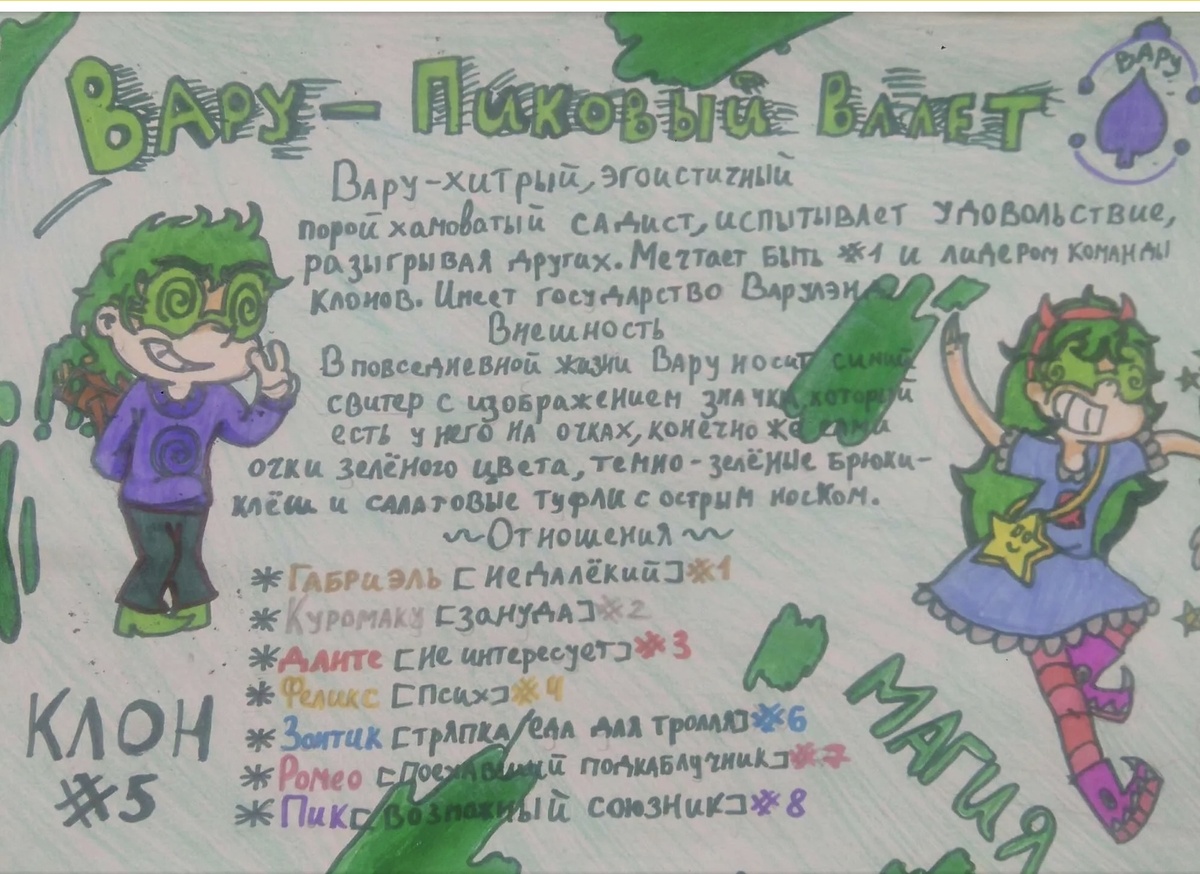 Вару - Пиковый Валет
ВАРУ
Вару-хитрый, эгоистичный
порой хамоватый садист, испытывает удовольствие,
разыгрывая других. Мечтает быть #1 и лидером команды
клонов. Имеет государство Варулэнд
Внешность
В повседневной жизни Вару носит синий
свитер с изображением значка, который
есть у него на очках, конечно же сами
очки зелёного цвета, темно-зелёные брюки-
клёш и салатовые туфли с острым носком.
~Отношения~
*Габриэль [недалёкий]#1
*Куромаку [зануда]#2
*Данте [не интересует]#3
*Феликс [псих]#4
*Зонтик [тряпка/еда для тролля]#6
*Ромео [поехавший подкаблучник]#7
*Пик[возможный союзник]#8
КЛОН
#5
МАГИЯ